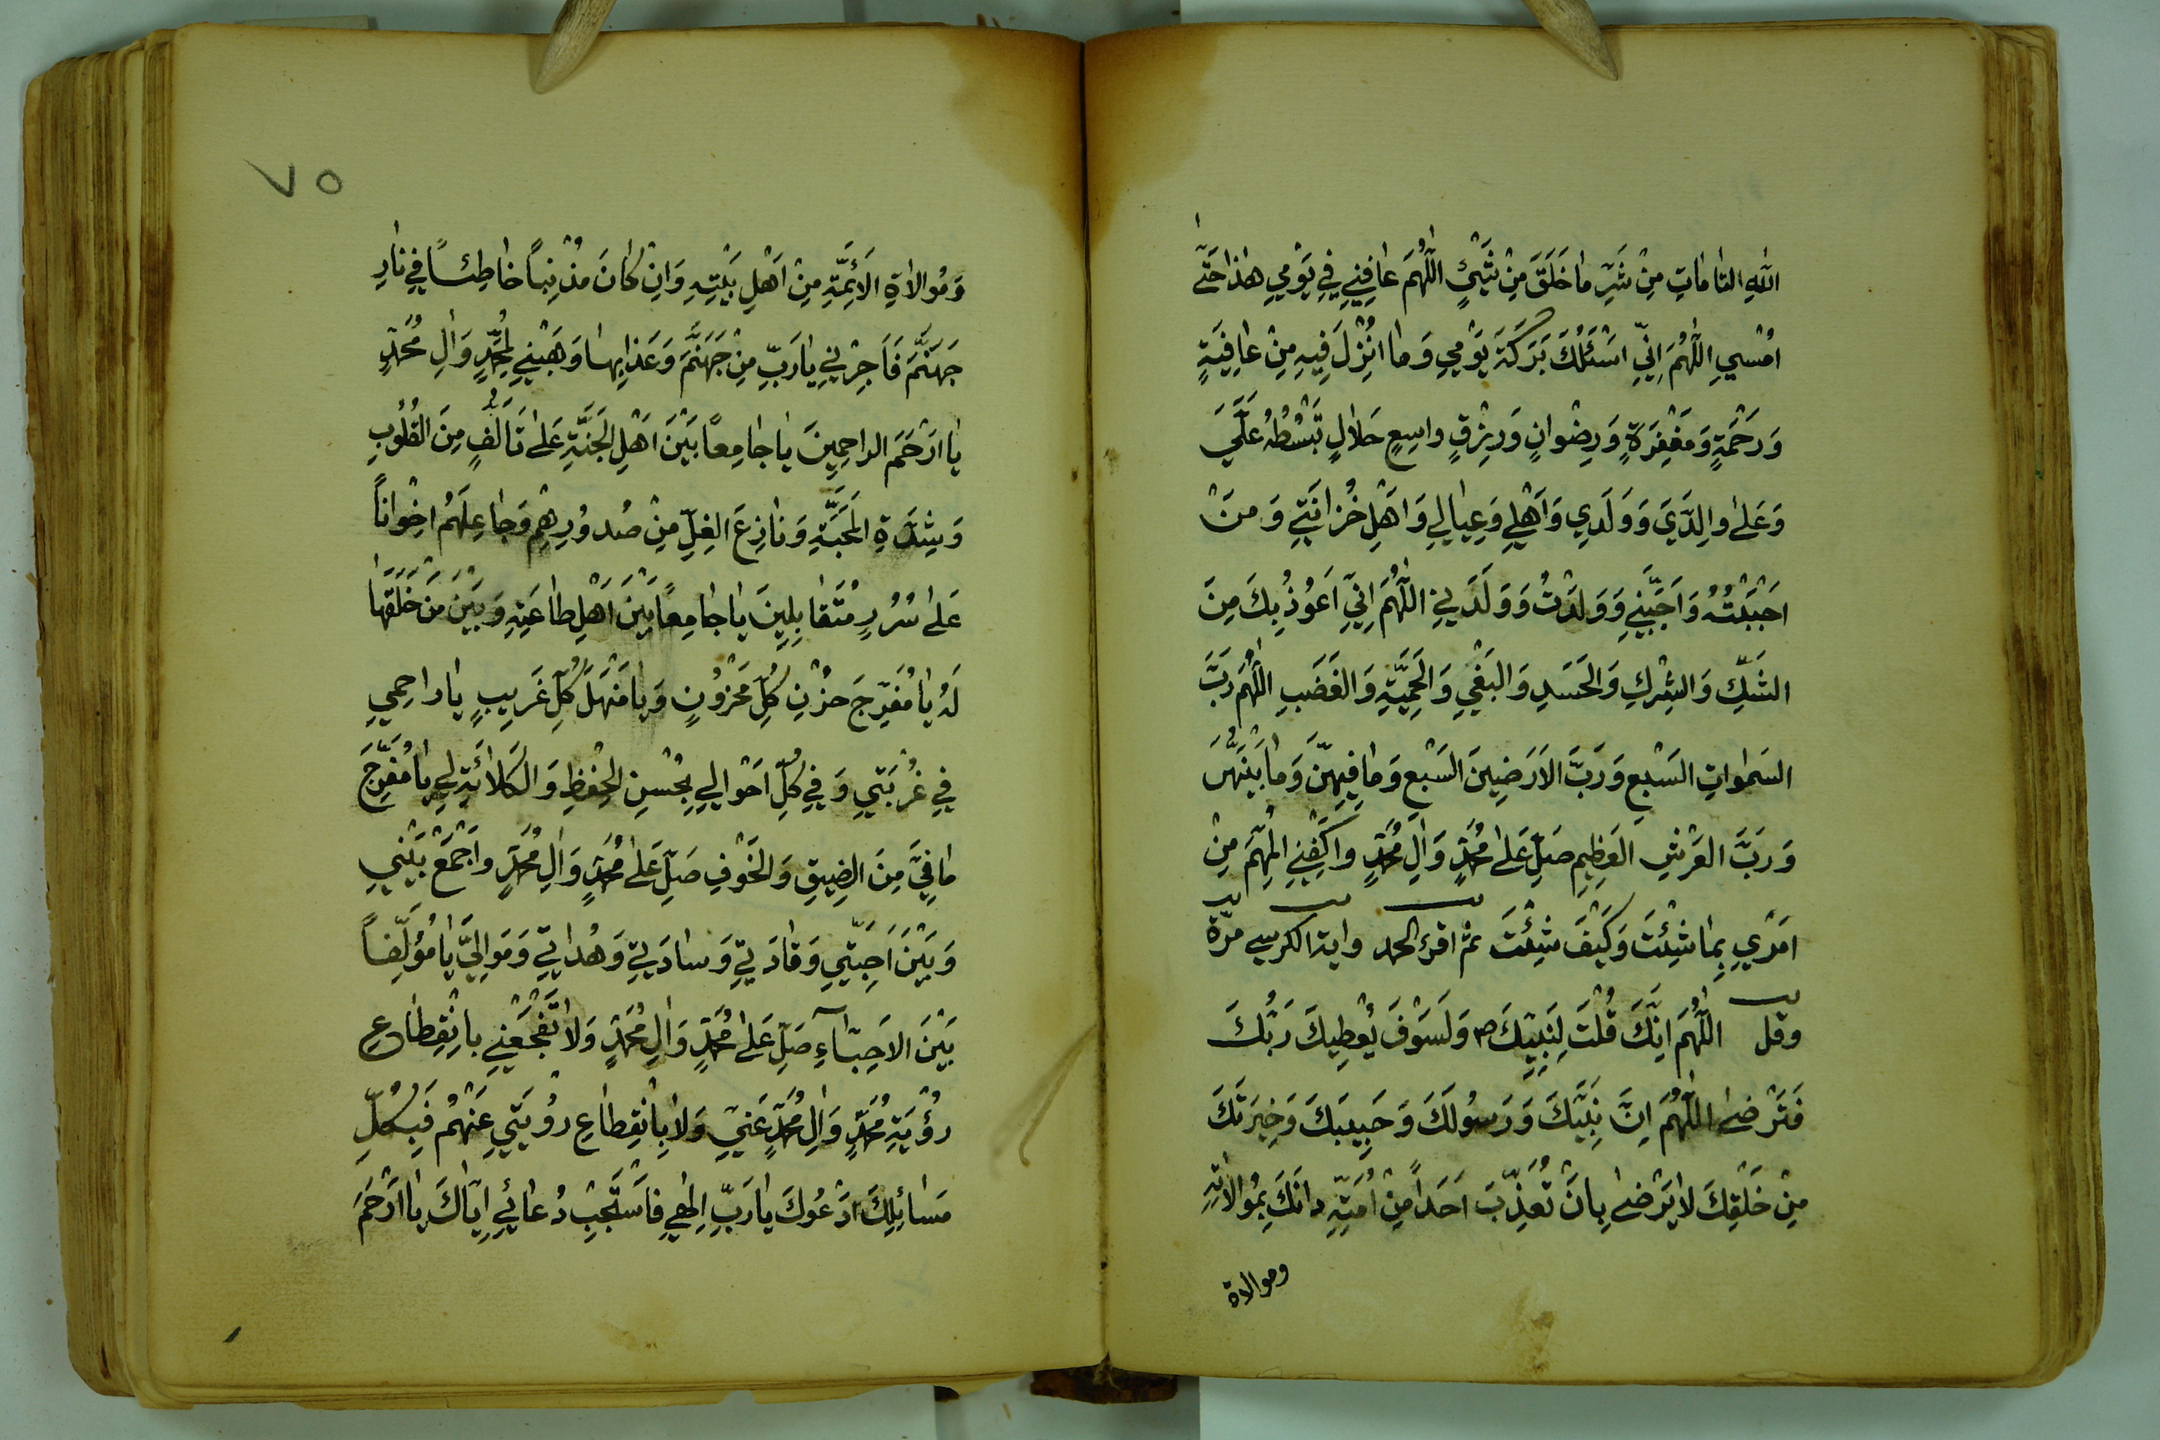 اللهِ التاماتِ مِنْ شَرِّ ما خَلَقَ مِنْ شَيْءٍ اللّٰهُمَ عافِنِي فِي يَوْمِي هٰذا حَتّٰى
اُمْسِي اللّٰهُمَ اِنّي اَسْئَلُكَ بَرَكَةَ يَوْمِي وَما اُنْزِلَ فِيهِ مِنْ عافِيَةٍ
وَرَحْمَةٍ وَمَغْفِرَةٍ وَرِضْوانٍ وَرِزْقٍ واسِعٍ حَلالٍ تَبْسُطُهُ عَلَيَّ
وَعَلىٰ والِدَيَّ وَوَلَدِي وَاَهْلِي وَعِيالِي وَاَهْلِ حُزانَتِي وَمَنْ
اَحْبَبْتُهُ وَاَحَبَّنِي وَوَلَدْتُ وَوَلَدَنِي اللّٰهُمَ اِنّي اَعُوذُ بِكَ مِنَ
الشَكِّ وَالشِرْكِ وَالحَسَدِ وَالبَغْيِ وَالحَمِيَّةِ وَالغَضَبِ اللّٰهُمَ رَبَّ
السَمٰواتِ السَبْعِ وَرَبَّ الاَرَضِينَ السَبْعِ وَما فِيهِنَّ وَما بَيْنَهُنَّ
وَرَبَّ العَرْشِ العَظِيمِ صَلِّ عَلىٰ مُحَمَّدٍ وَاٰلِ مُحَمَّدٍ وَاكْفِنِي المُهِمَّ مِنْ
اَمْرِي بِما شِئْتَ وَكَيْفَ شِئْتَ ثم اقرء الحمد واية الكرسي مرّة
وقل اللّٰهُمَ اِنَّكَ قُلْتَ لِنَبِيِّكَ ص وَلَسَوْفَ يُعْطِيكَ رَبُّكَ
فَتَرْضىٰ اللّٰهُمَ اِنَّ نَبِيَّكَ وَرَسُولَكَ وَحَبِيبَكَ وَخِيَرَتَكَ
مِنْ خَلْقِكَ لا يَرْضىٰ بِاَنْ تُعَذِّبَ اَحَداً مِنْ اُمَّتِهِ دانَكَ بِمُوالاتِهِ
وموالاة
٧٥
وَمُوالاةِ الاَئِمَّةِ مِنْ اَهْلِ بَيْتِهِ وَاِنْ كانَ مُذْنِباً خاطِئاً فِي نارِ
جَهَنَّمَ فَاَجِرْنِي يا رَبِّ مِنْ جَهَنَّمَ وَعَذابِها وَهَبْنِي لِمُحَمَّدٍ وَاٰلِ مُحَمَّدٍ
يا اَرْحَمَ الراحِمِينَ يا جامِعاً بَيْنَ اَهْلِ الجَنَّةِ عَلىٰ تَاَلُّفٍ مِنَ القُلُوبِ
وَشِدَّةِ المَحَبَّةِ وَنازِعَ الغِلِّ مِنْ صُدُورِهِم وَجاعِلَهُم اِخْواناً
عَلىٰ سُرُرٍ مُتَقابِلِينَ يا جامِعاً بَيْنَ اَهْلِ طاعَتِهِ وَبَيْنَ مَنْ خَلَقَها
لَهُ يا مُفَرِّجَ حُزْنِ كُلِّ مَحْزُونٍ وَيا مَنْهَلَ كُلِّ غَرِيبٍ يا راحِمِي
فِي غُرْبَتِي وَفِي كُلِّ اَحْوالِي بِحُسْنِ الحِفْظِ وَالكَلائَةِ لِي يا مُفَرِّجَ
ما فِيَّ مِنَ الضِيقِ وَالخَوْفِ صَلِّ عَلىٰ مُحَمَّدٍ وَاٰلِ مُحَمَّدٍ واَجْمَعْ بَيْنِي
وَبَيْنَ اَحِبَّتِي وَقادَتِي وَسادَتِي وَهُداتِي وَمَوالِيَّ يا مُؤَلِّفاً
بَيْنَ الاَحِبّآءِ صَلِّ عَلىٰ مُحَمَّدٍ وَاٰلِ مُحَمَّدٍ وَلا تَفْجَعْنِي بِانْقِطاعِ
رُؤْيَةِ مُحَمَّدٍ وَاٰلِ مُحَمَّدٍ عَنّي وَلا بِانْقِطاعِ رُؤْيَتِي عَنْهُم فَبِكُلِّ
مَسائِلِكَ اَدْعُوكَ يا رَبِّ اِلٰهِي فَاسْتَجِبْ دُعائِي اِيّاكَ يا اَرْحَمَ